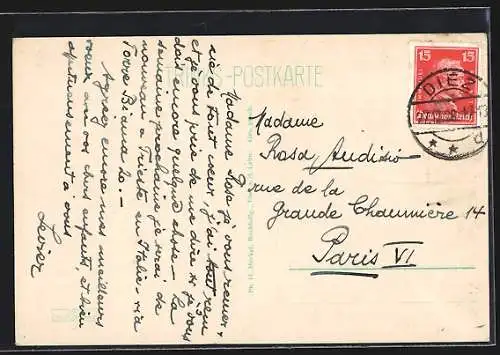 TRINKS-POSTKARTE
Madame Rosa je vous remer-
cie de tout cœur, j'ai tout reçu
et je vous prie de me dire si je vous
dois encore quelque chose - La
semaine prochaine je serai de
nouveau à Trieste en Italie via
Torre Bianca 20 -
Agréez encore mes meilleurs
voeux avec vos chers enfants, et bien
affectueusement à vous
Levier
Madame
Rosa Audisio
rue de la
Grande Chaumière 14
Paris VI
15 15
DIEZ